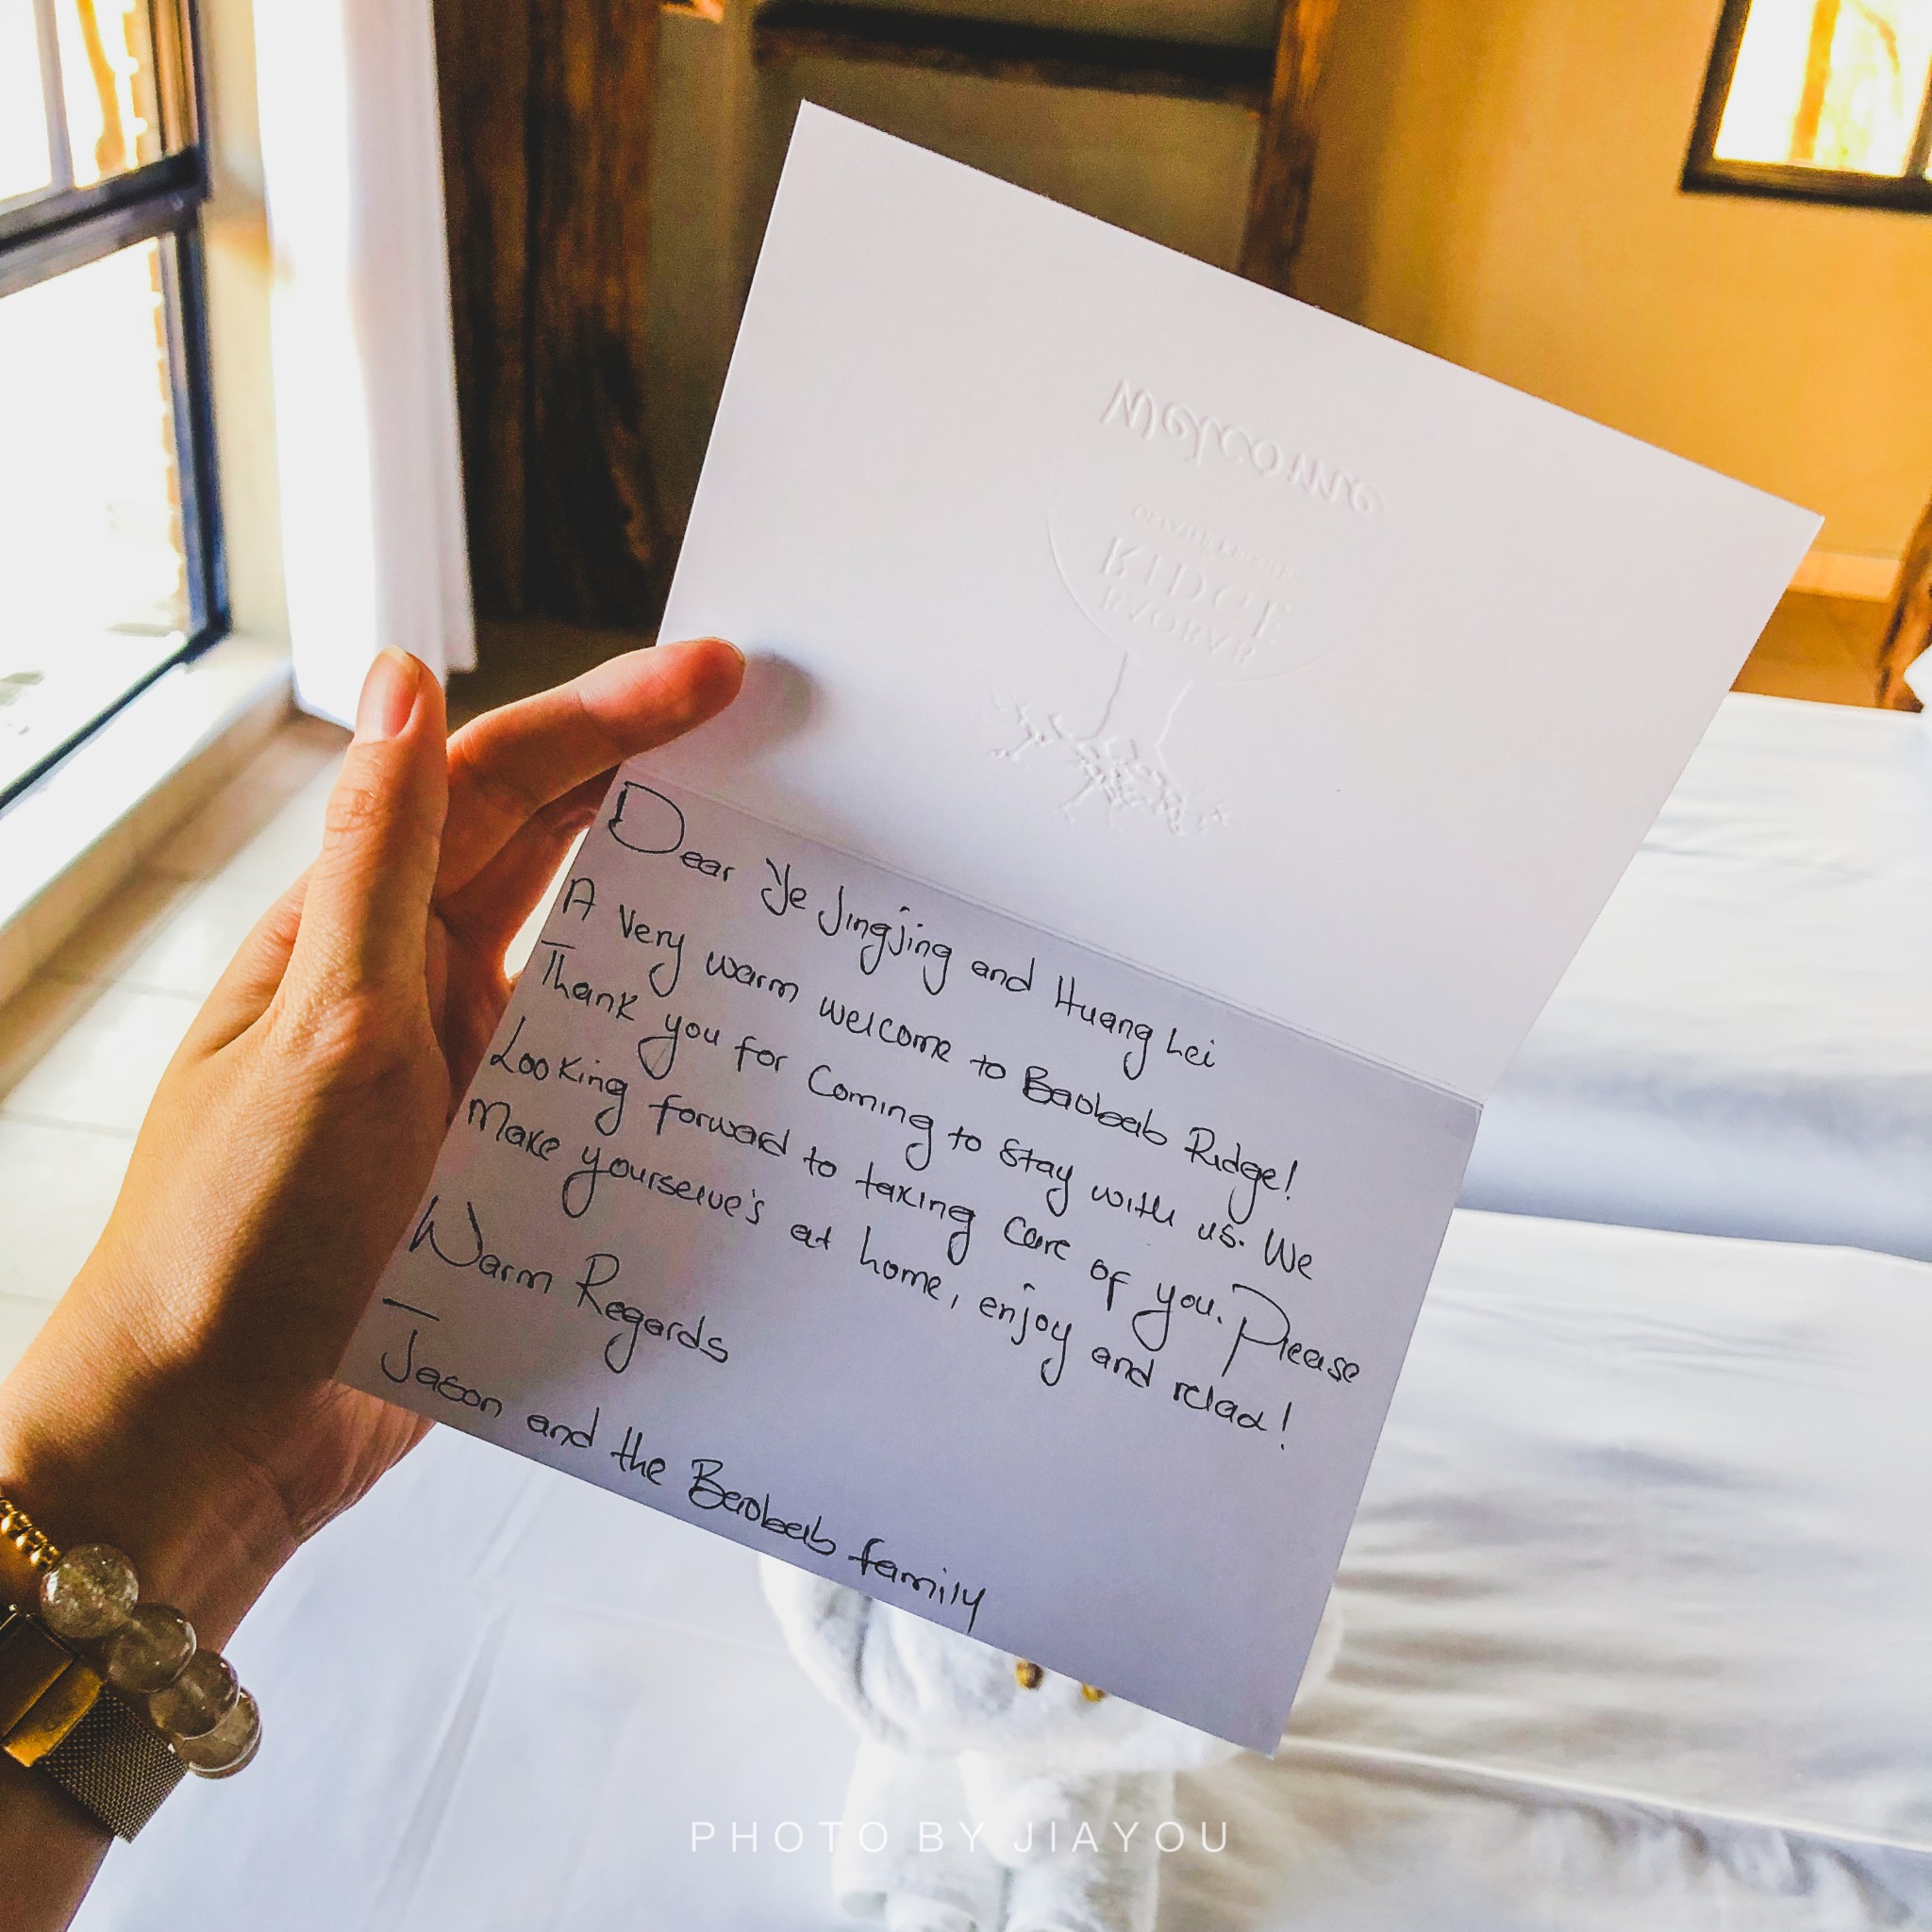 Welcome
RIDGE
BAOBAB
Dear Ye Jingjing and Huang Lei
A very warm welcome to Baobab Ridge!
Thank you for Coming to Stay with us. We
Looking forward to taking care of you. Please
Make yourselve's at home, enjoy and relax!
Warm Regards
Jason and the Baobab family
PHOTO BY JIAYOU